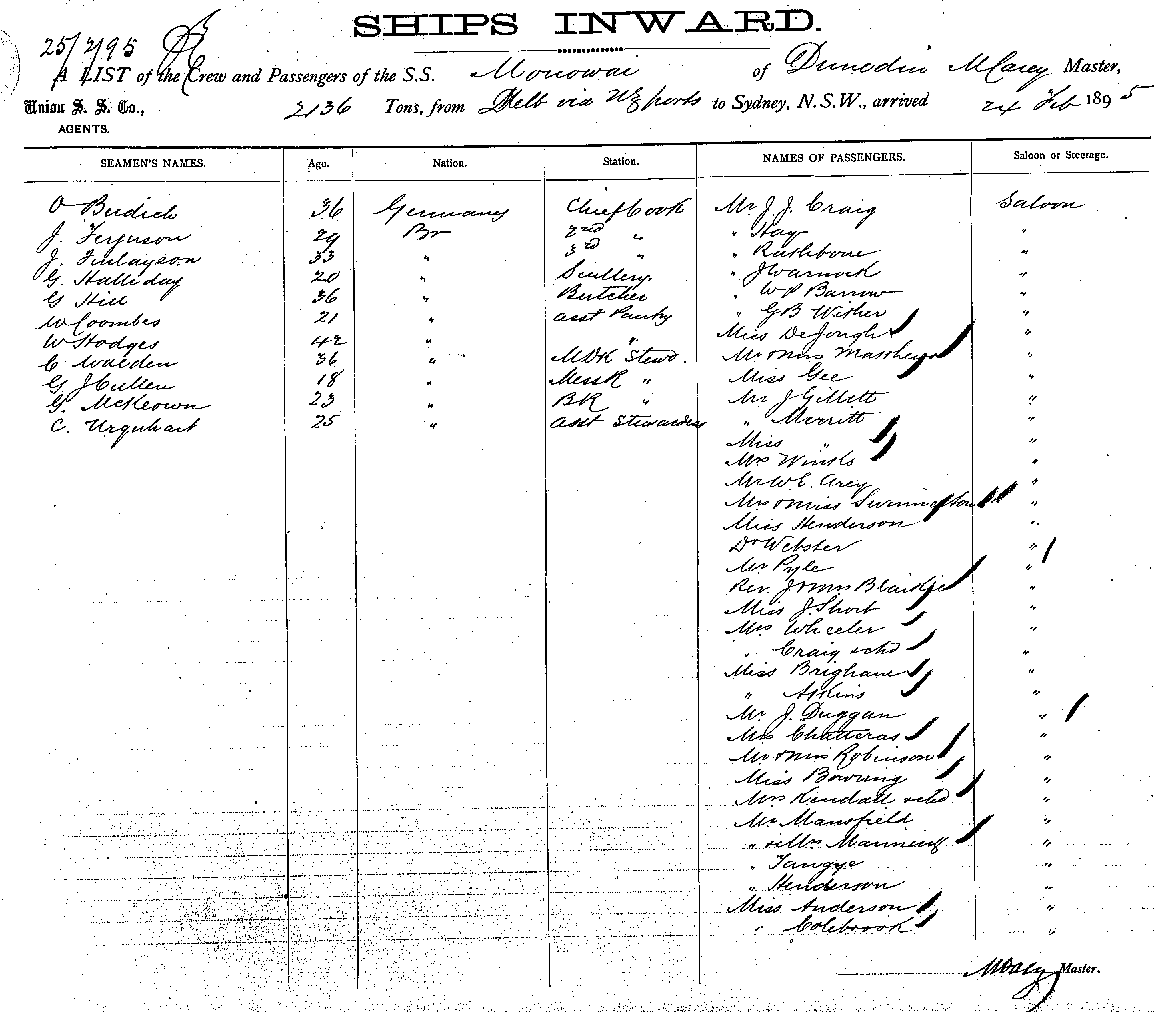 SHIPS INWARD.
25/2/95
A LIST of the Crew and Passengers of the S.S. Monowai of Dunedin M Carey Master,
Union S. S. Co., 2136 Tons, from Melb via NZ ports to Sydney, N.S.W., arrived 24 Feb 1895
AGENTS.
SEAMEN'S NAMES. Age. Nation. Station. NAMES OF PASSENGERS. Saloon or Steerage.
O Budich 36 Germany Chief Cook Mr J. J. Craig Saloon
J. Ferguson 29 Br 2nd " " Hay "
J. Finlayson 33 " 3rd " " Rathbone "
G. Halliday 20 " Scullery " J Warnock "
G Hill 36 " Butcher " W P Barrow "
W Coombes 21 " asst Pantry " G B Wither "
W Hodges 42 " " Miss DeJongh "
C Walden 36 " MDK Stewd. Mr & Mrs Matthews "
G J Cullen 18 " MessR " Miss Gee "
G. McKeown 23 " BR " Mr J Gillett "
C. Urquhart 25 " asst Stewardess " Merritt "
Miss " "
Mrs Winks "
Mr W. E. Arey "
Mrs & Miss "
Miss Henderson "
Dr Webster "
Mr Pyle "
Rev. J & Mrs Blaikie "
Miss J. Short "
Mrs Wheeler "
" Craig & chd "
Miss Brigham "
" Atkins "
Mr J. Duggan "
Mrs Chatteras "
Mr & Mrs Robinson "
Miss Bowring "
Mrs Kendall & chd "
Mr Mansfield "
" & Mrs Manning "
" Tangye "
" Henderson "
Miss Anderson "
" Colebrook "
M Carey Master.